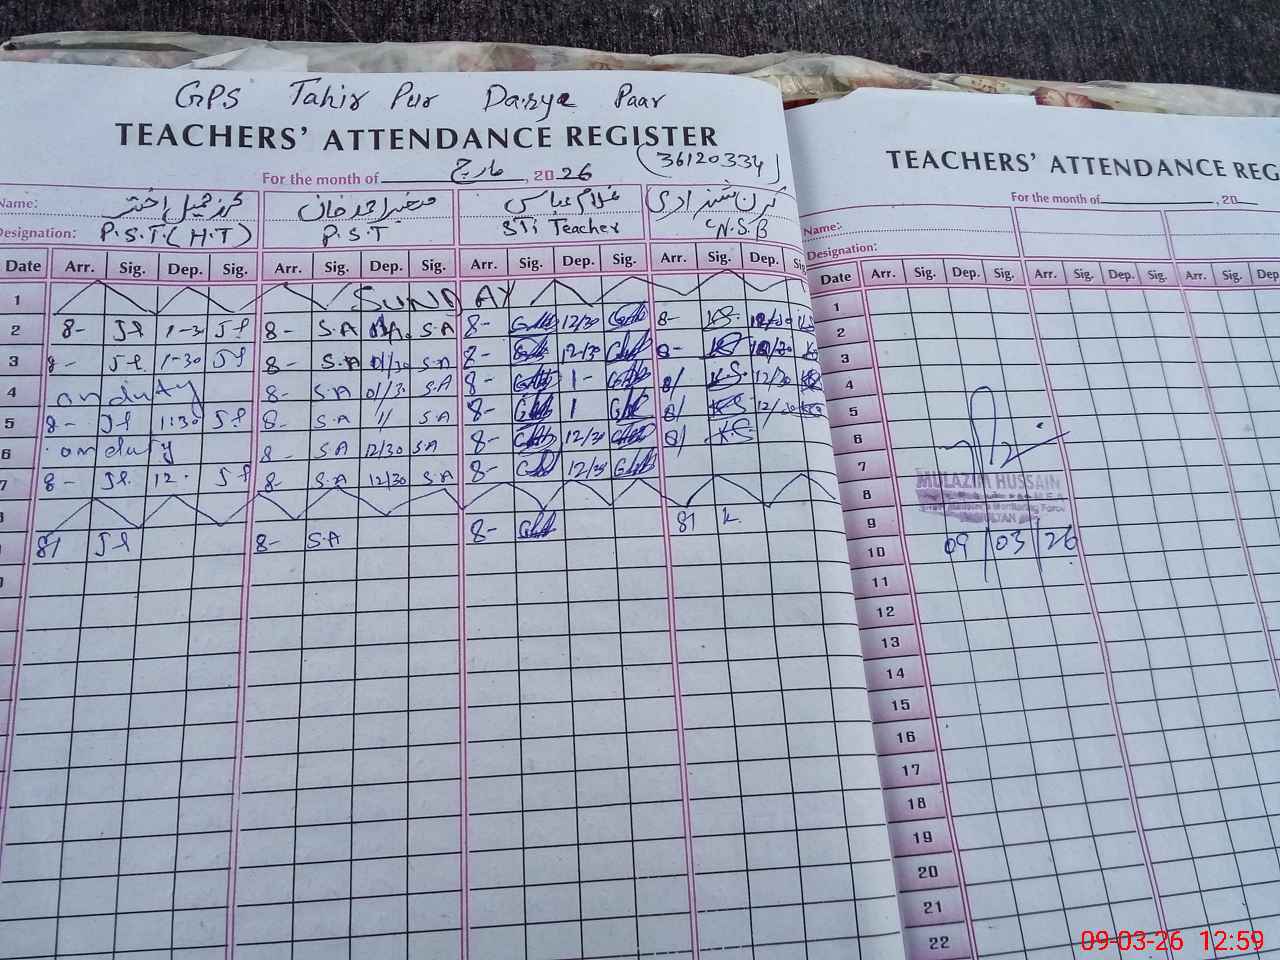 GPS Tahir Pur Darya Paar
TEACHERS' ATTENDANCE REGISTER
(36120334)
For the month of مارچ, 2026
Name: اختر صغیر احمد خان غلام عباس کرن شہزادی
Designation: P.S.T.(H.T) P.S.T STi Teacher N.S.B
Date Arr. Sig. Dep. Sig. Arr. Sig. Dep. Sig. Arr. Sig. Dep. Sig. Arr. Sig. Dep. Sig
1 SUNDAY
2 8- 1-30 8- S.A S.A 8- 12/30 8- K.S.
3 8- 1-30 8- S.A 01/30 S.A 8- 12/30 8-
4 on duty 8- S.A 01/30 S.A 8- 1- 8/ K.S. 12/30
5 8- 1:30 8- S.A 11 S.A 8- 1 8/ K.S 12/30
6 on duty 8- S.A 12/30 S.A 8- 12/30 8/ K.S.
7 8- 12. 8- S.A 12/30 S.A 8- 12/30
8/ 8- S.A 8- 8/ K.
TEACHERS' ATTENDANCE REG
For the month of , 20
Name:
Designation:
Date Arr. Sig. Dep. Sig. Arr. Sig. Dep. Sig. Arr. Sig. Dep
1
2
3
4
5
6
7
8
9
10
11
12
13
14
15
16
17
18
19
20
21
22
MULAZIM HUSSAIN
09/03/26
09-03-26 12:59